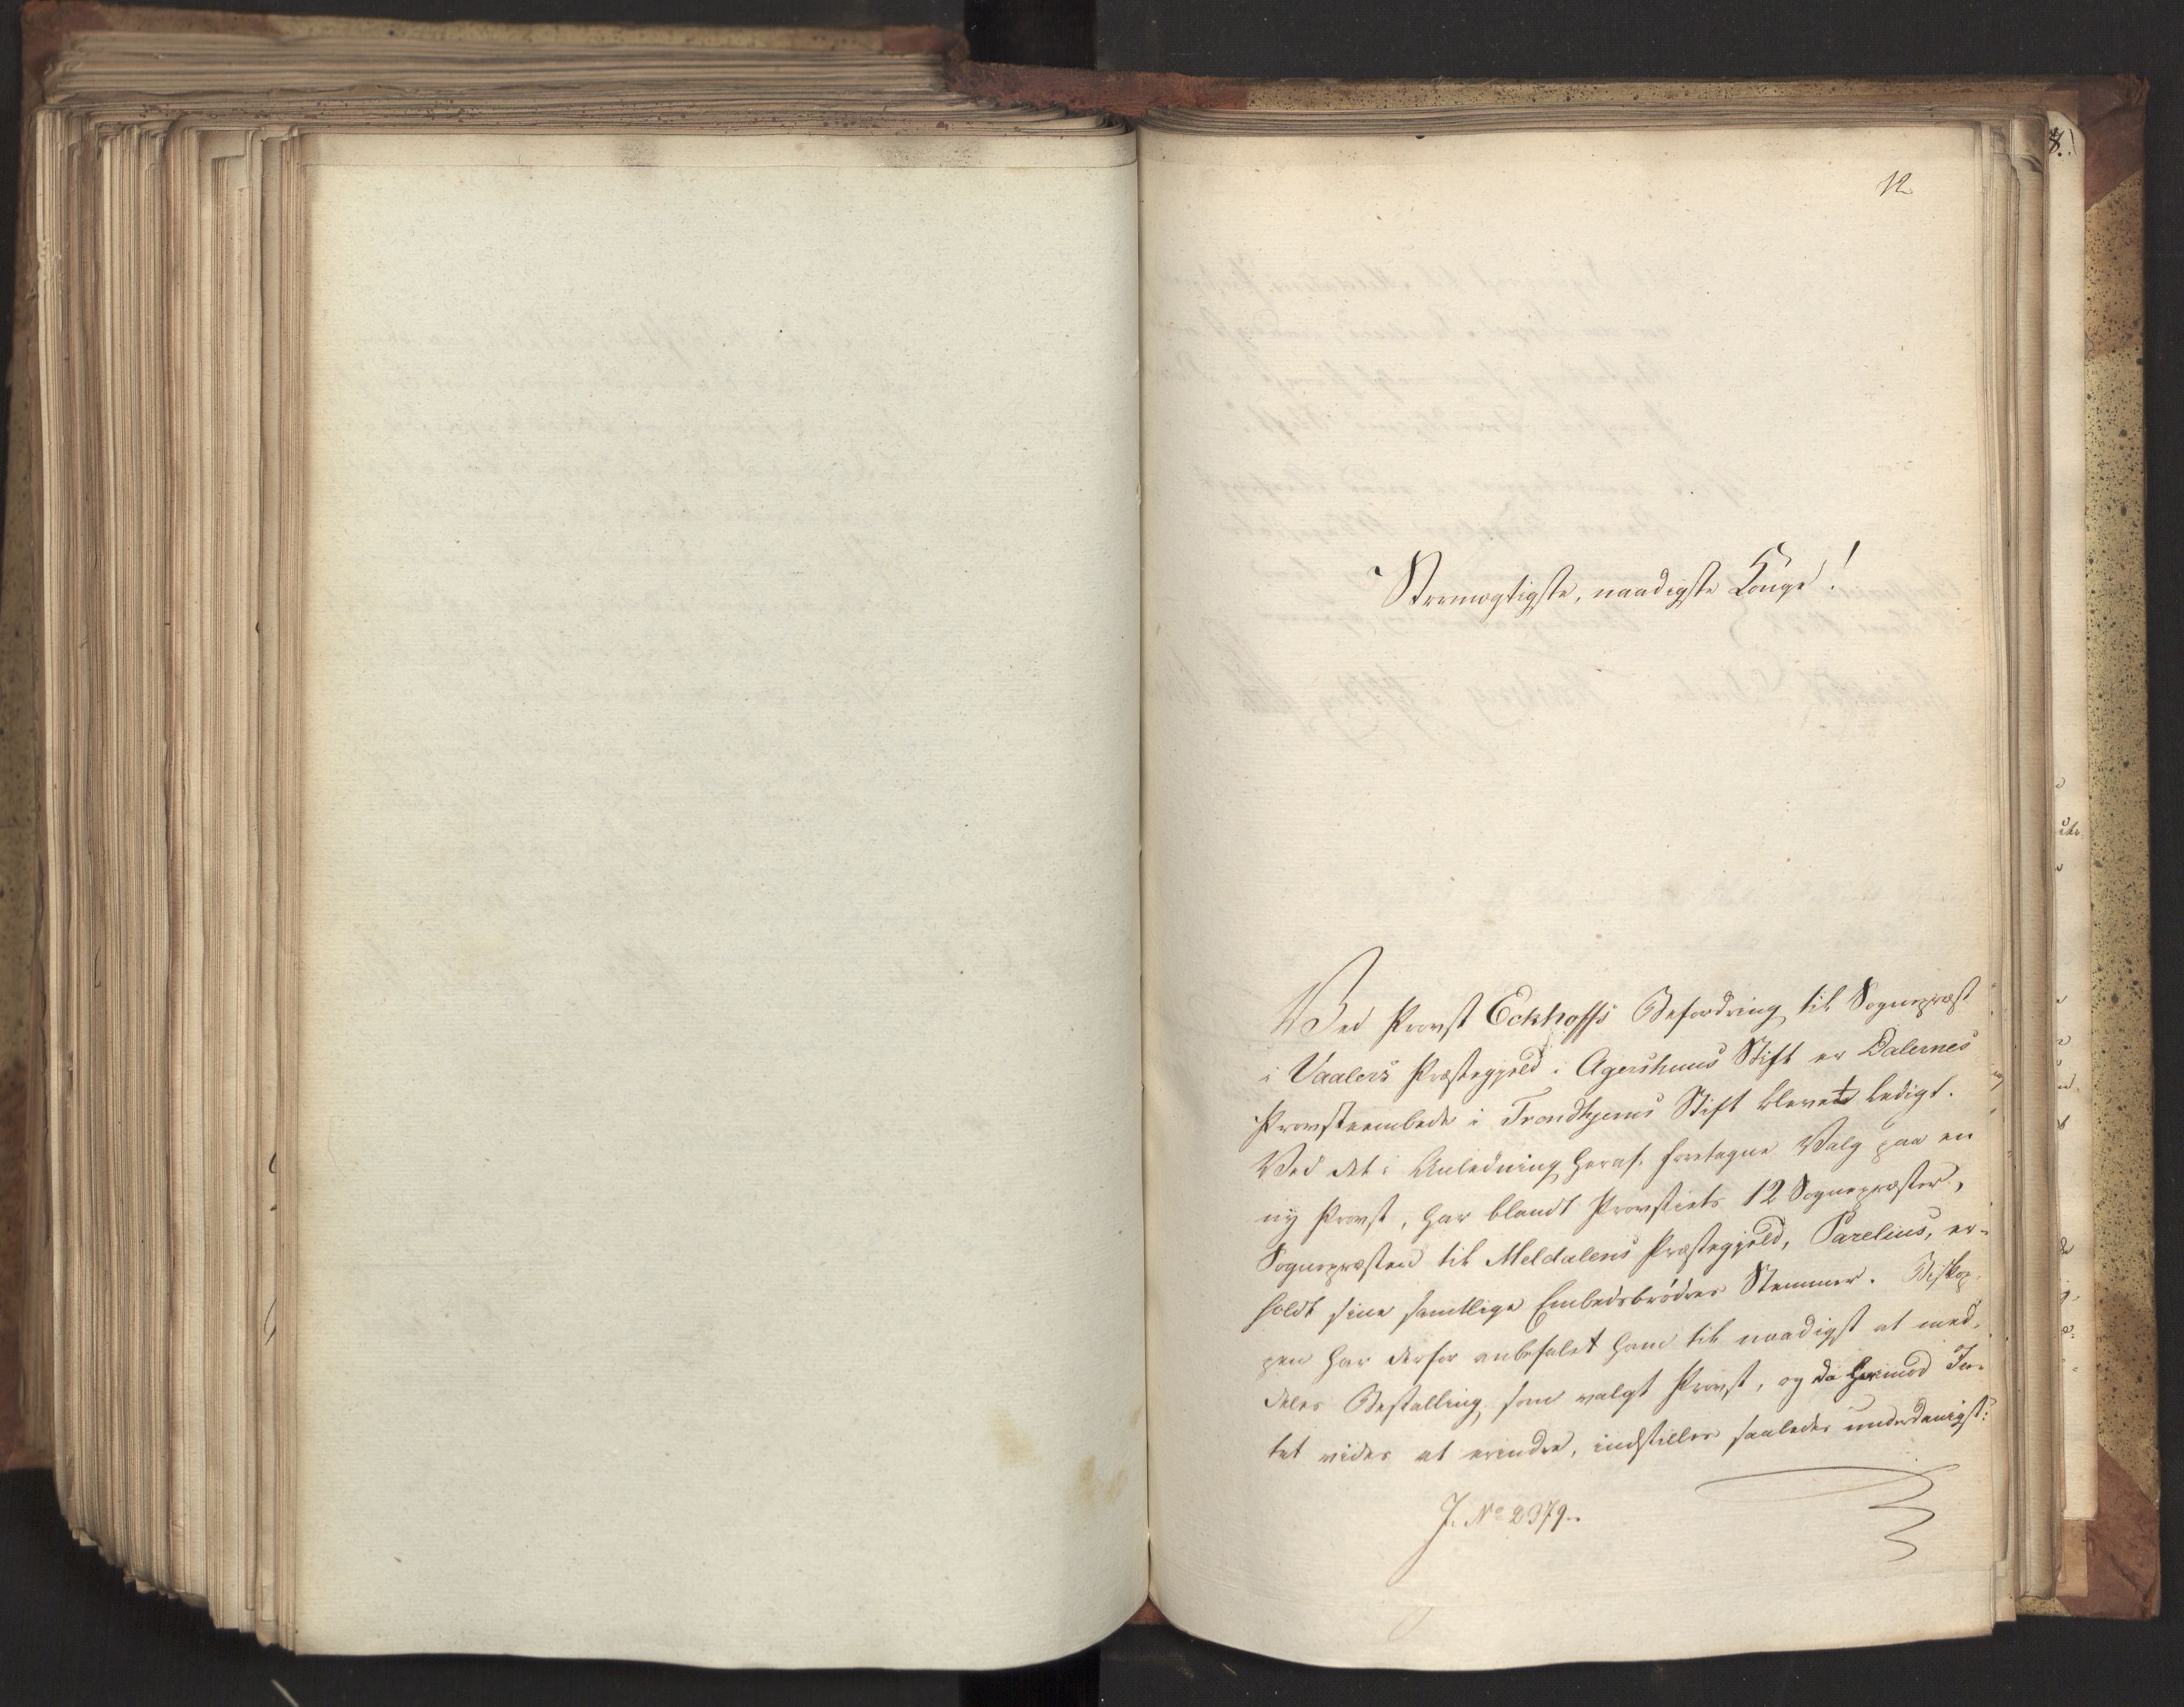 12
Stormægtigste, naadigste Konge!
Ved Provst Eckhoffs Befordring til Sognepræst
i Vaalers Præstegjeld i Agershuus Stift er Dalernes
Provsteembede i Trondhjems Stift blevet ledigt.
Ved det i Anledning heraf foretagne Valg paa en
ny Provst, har blandt Provstiets 12 Sognepræster,
Sognepræsten til Meldalens Præstegjeld, Parelius, er-
holdt sine samtlige Embedsbrødres Stemmer. Biskop-
pen har derfor anbefalet ham til naadigst at med-
deles Bestalling som valgt Provst, og da herimod In-
tet vides at erindre, indstilles saaledes underdanigst:
J. No 2379.